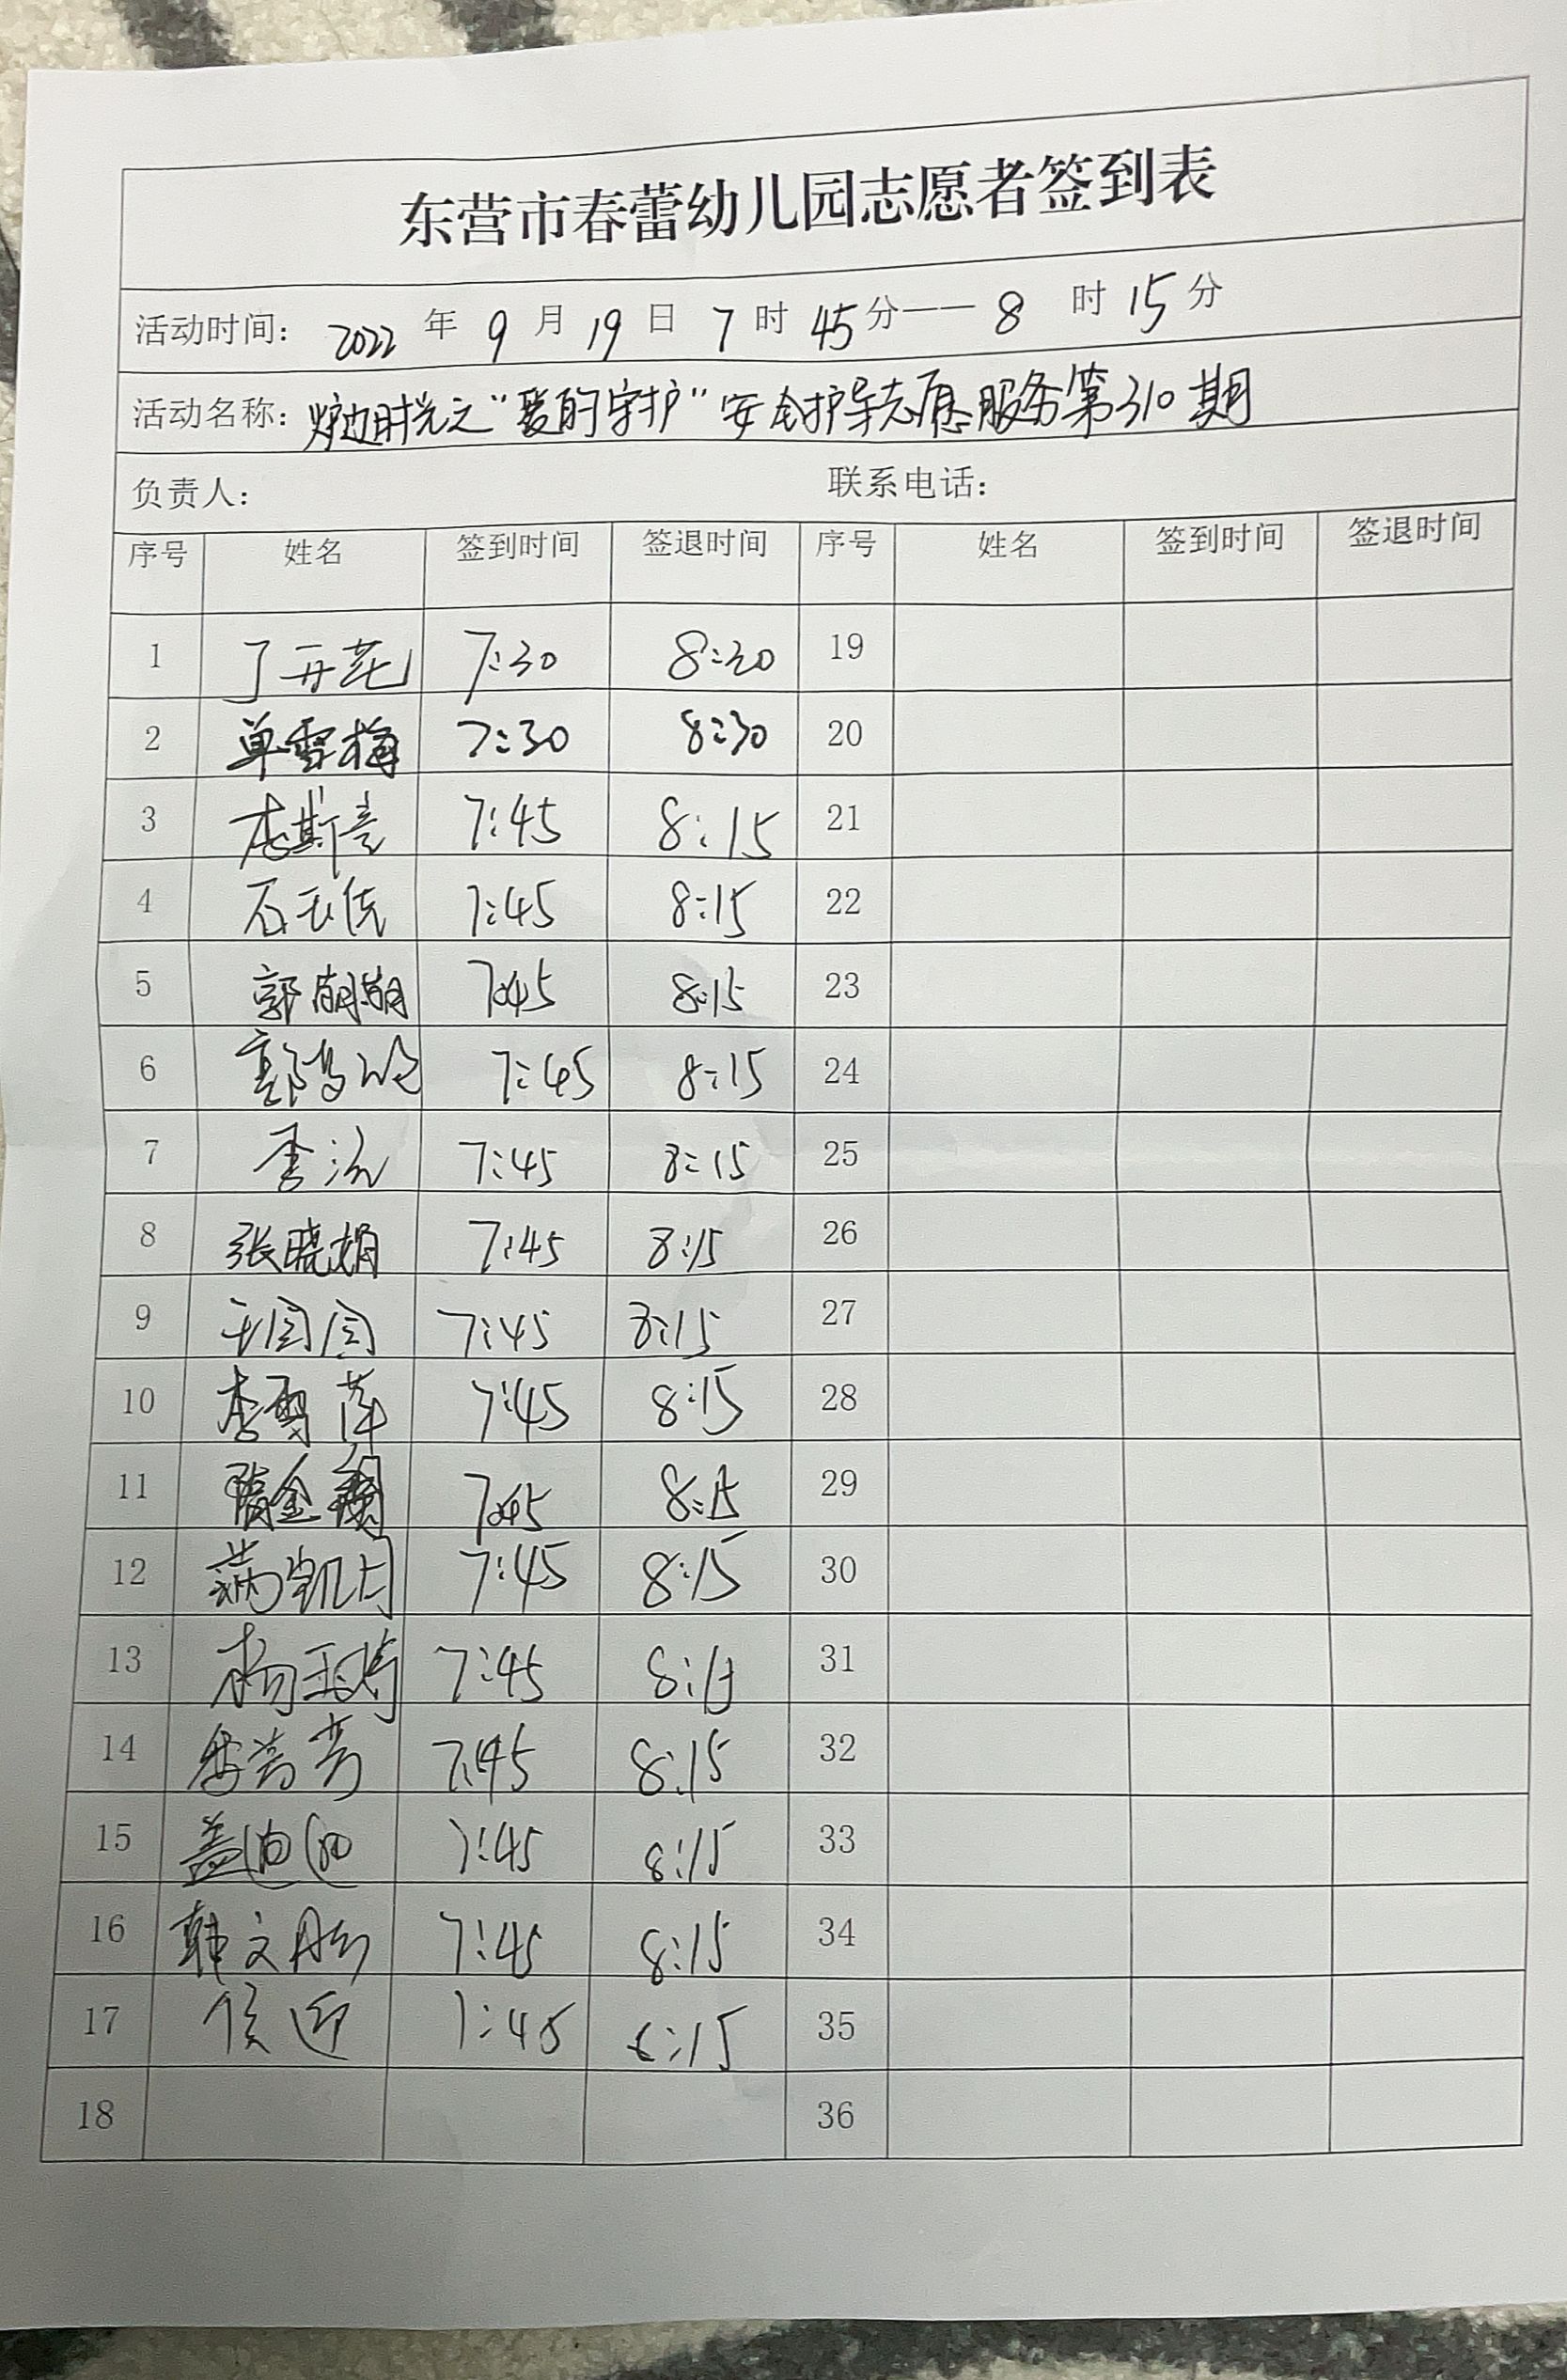 东营市春蕾幼儿园志愿者签到表
活动时间: 2022 年 9 月 19 日 7 时 45 分——8 时 15 分
活动名称: 炉边时光之“爱的守护”安全护导志愿服务第310期
负责人: 联系电话:
序号 姓名 签到时间 签退时间 序号 姓名 签到时间 签退时间
1 丁开花 7:30 8:30 19
2 单雪梅 7:30 8:30 20
3 李斯 7:45 8:15 21
4 石玉倩 7:45 8:15 22
5 郭萌萌 7:45 8:15 23
6 郭 7:45 8:15 24
7 李 7:45 8:15 25
8 张晓娟 7:45 8:15 26
9 王团团 7:45 8:15 27
10 李雪萍 7:45 8:15 28
11 隋金 7:45 8:15 29
12 满凯月 7:45 8:15 30
13 杨玉 7:45 8:15 31
14 芳 7:45 8:15 32
15 盖迪迪 7:45 8:15 33
16 韩文彤 7:45 8:15 34
17 侯迎 7:45 8:15 35
18 36